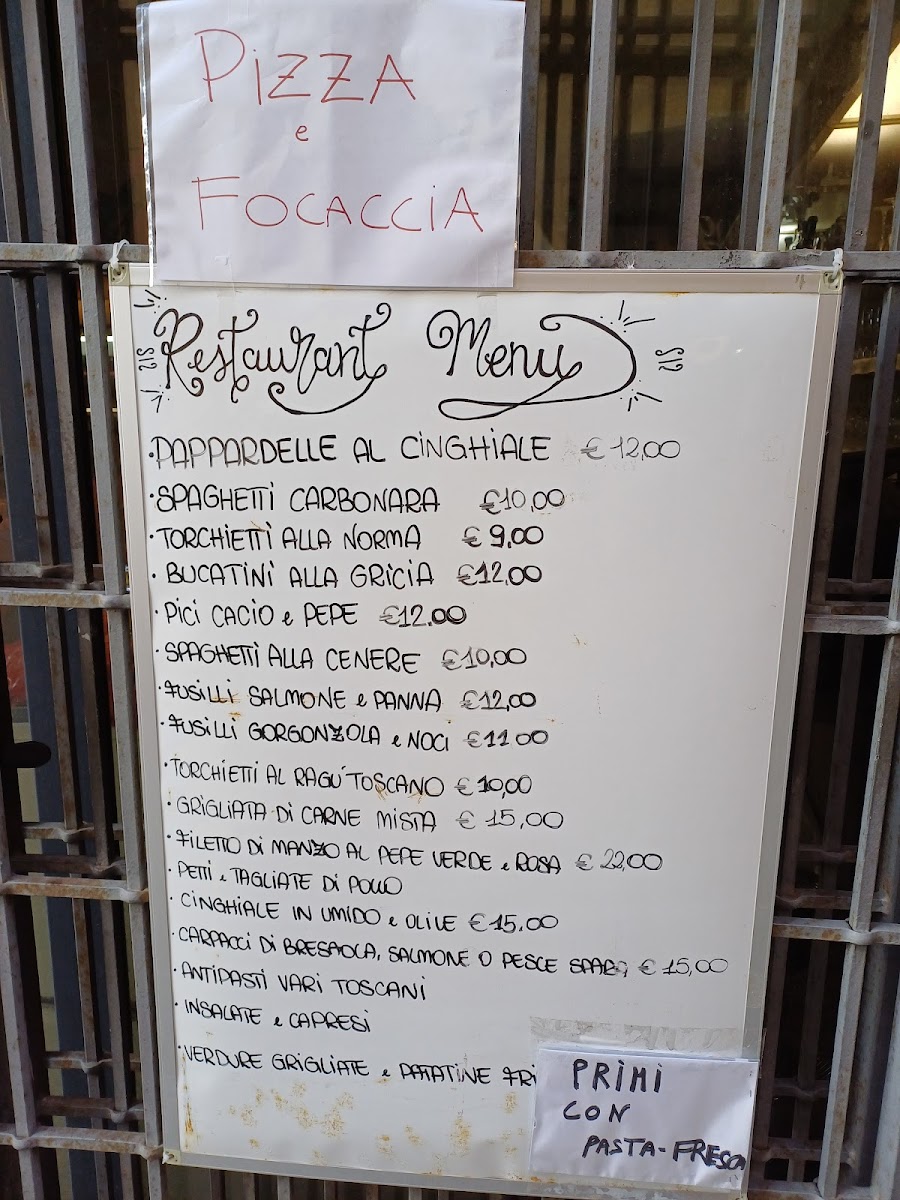 PIZZA
e
FOCACCIA
Restaurant Menu
• PAPPARDELLE AL CINGHIALE € 12,00
• SPAGHETTI CARBONARA €10,00
• TORCHIETTI ALLA NORMA € 9,00
• BUCATINI ALLA GRICIA €12,00
• PICI CACIO e PEPE €12.00
• SPAGHETTI ALLA CENERE €10,00
• FUSILLI SALMONE e PANNA €12,00
• FUSILLI GORGONZOLA e NOCI €11.00
• TORCHIETTI AL RAGU' TOSCANO € 10,00
• GRIGLIATA DI CARNE MISTA € 15,00
• FILETTO DI MANZO AL PEPE VERDE e ROSA € 22,00
• PETTI e TAGLIATE DI POLLO
• CINGHIALE IN UMIDO e OLIVE € 15,00
• CARPACCI DI BRESAOLA, SALMONE O PESCE € 15,00
• ANTIPASTI VARI TOSCANI
• INSALATE e CAPRESI
• VERDURE GRIGLIATE e PATATINE FRI
PRIMI
CON
PASTA-FRESCA